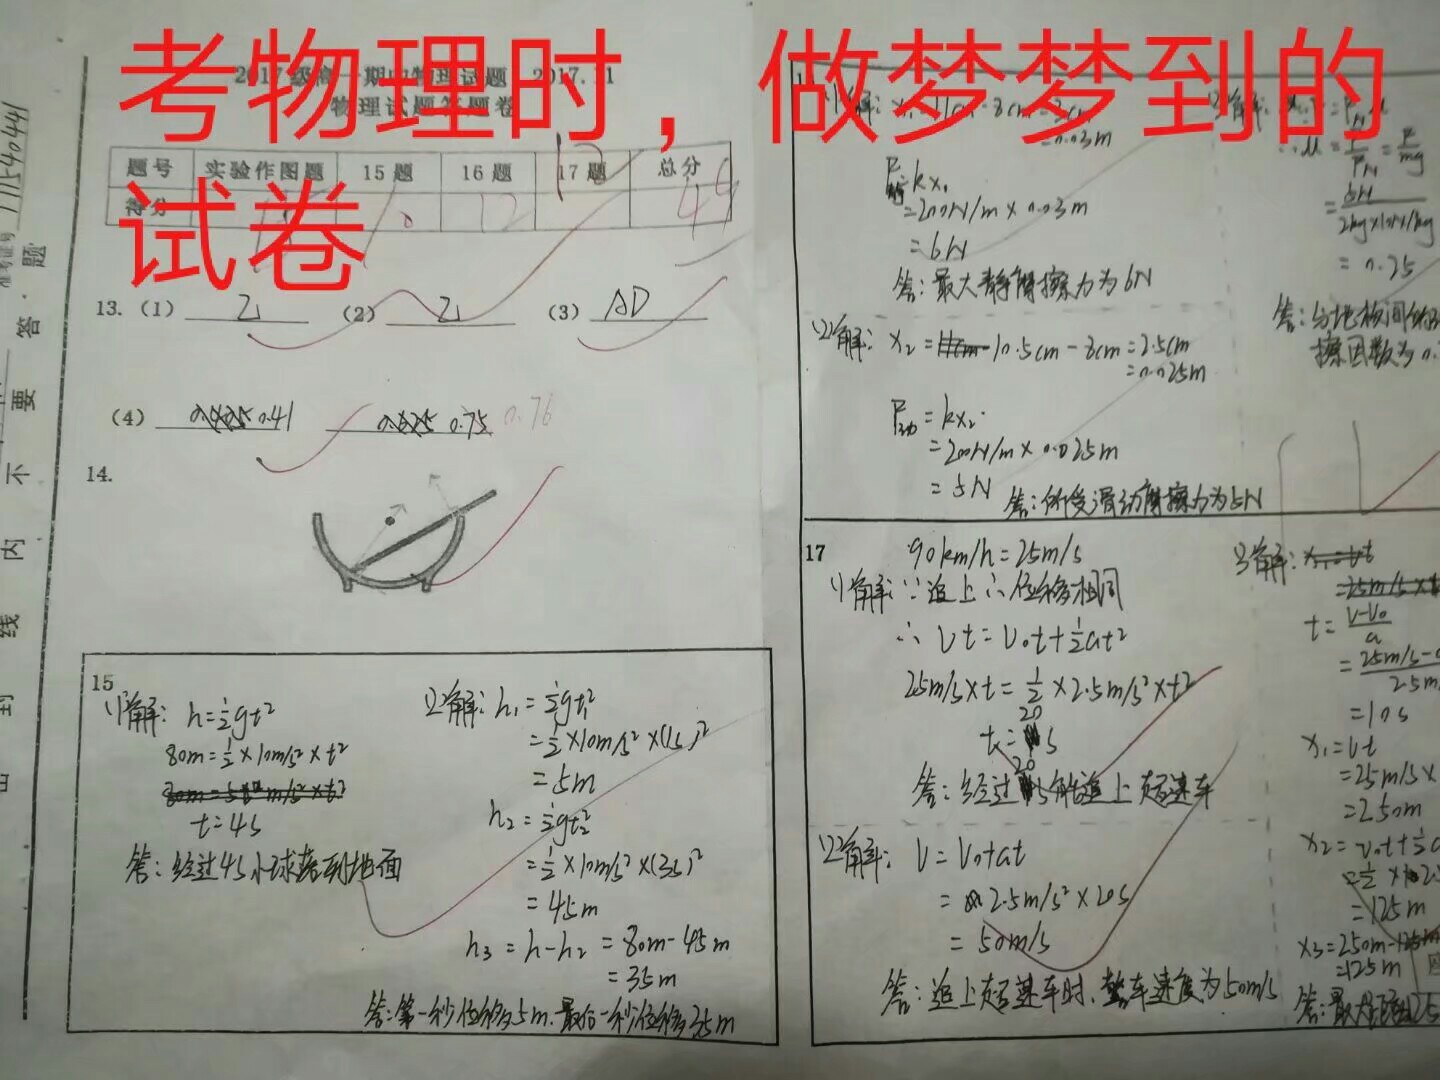 考物理时，做梦梦到的
试卷
2017级高一期中物理试题 2017.11
物理试题答题卷
题号 实验作图题 15题 16题 17题 总分
得分
11154041
答 题
不 要
线 内
封
13.(1) (2) (3) AD
(4) 0.41 0.75 0.76
14.
15
(1)解: h=½gt²
80m=½×10m/s²×t²
t=4s
答: 经过4s小球落到地面
(2)解: h₁=½gt₁²
=½×10m/s²×(1s)²
=5m
h₂=½gt₂²
=½×10m/s²×(3s)²
=45m
h₃=h-h₂=80m-45m
=35m
答: 第一秒位移5m.最后一秒位移35m
=0.03m
=kx₁
=200N/m×0.03m
=6N
答: 最大静摩擦力为6N
(2)解: x₂=10.5cm-8cm=2.5cm
=0.025m
=kx₂
=200N/m×0.025m
=5N
答: 所受滑动摩擦力为5N
∴μ=F/F_N=F/mg
=5N/2kg×10N/kg
=0.25
擦因数为0.
17
90km/h=25m/s
(1)解: ∵追上∴位移相同
∴ vt=v₀t+½at²
25m/s×t=½×2.5m/s²×t²
t=20s
答: 经过20s能追上超速车
(2)解: v=v₀+at
=2.5m/s²×20s
=50m/s
答: 追上超速车时,警车速度为50m/s
3)解:
t=v-v₀/a
=10s
x₁=vt
=25m/s×
=250m
x₂=v₀t+½a
=125m
x₃=250m-125m
=125m